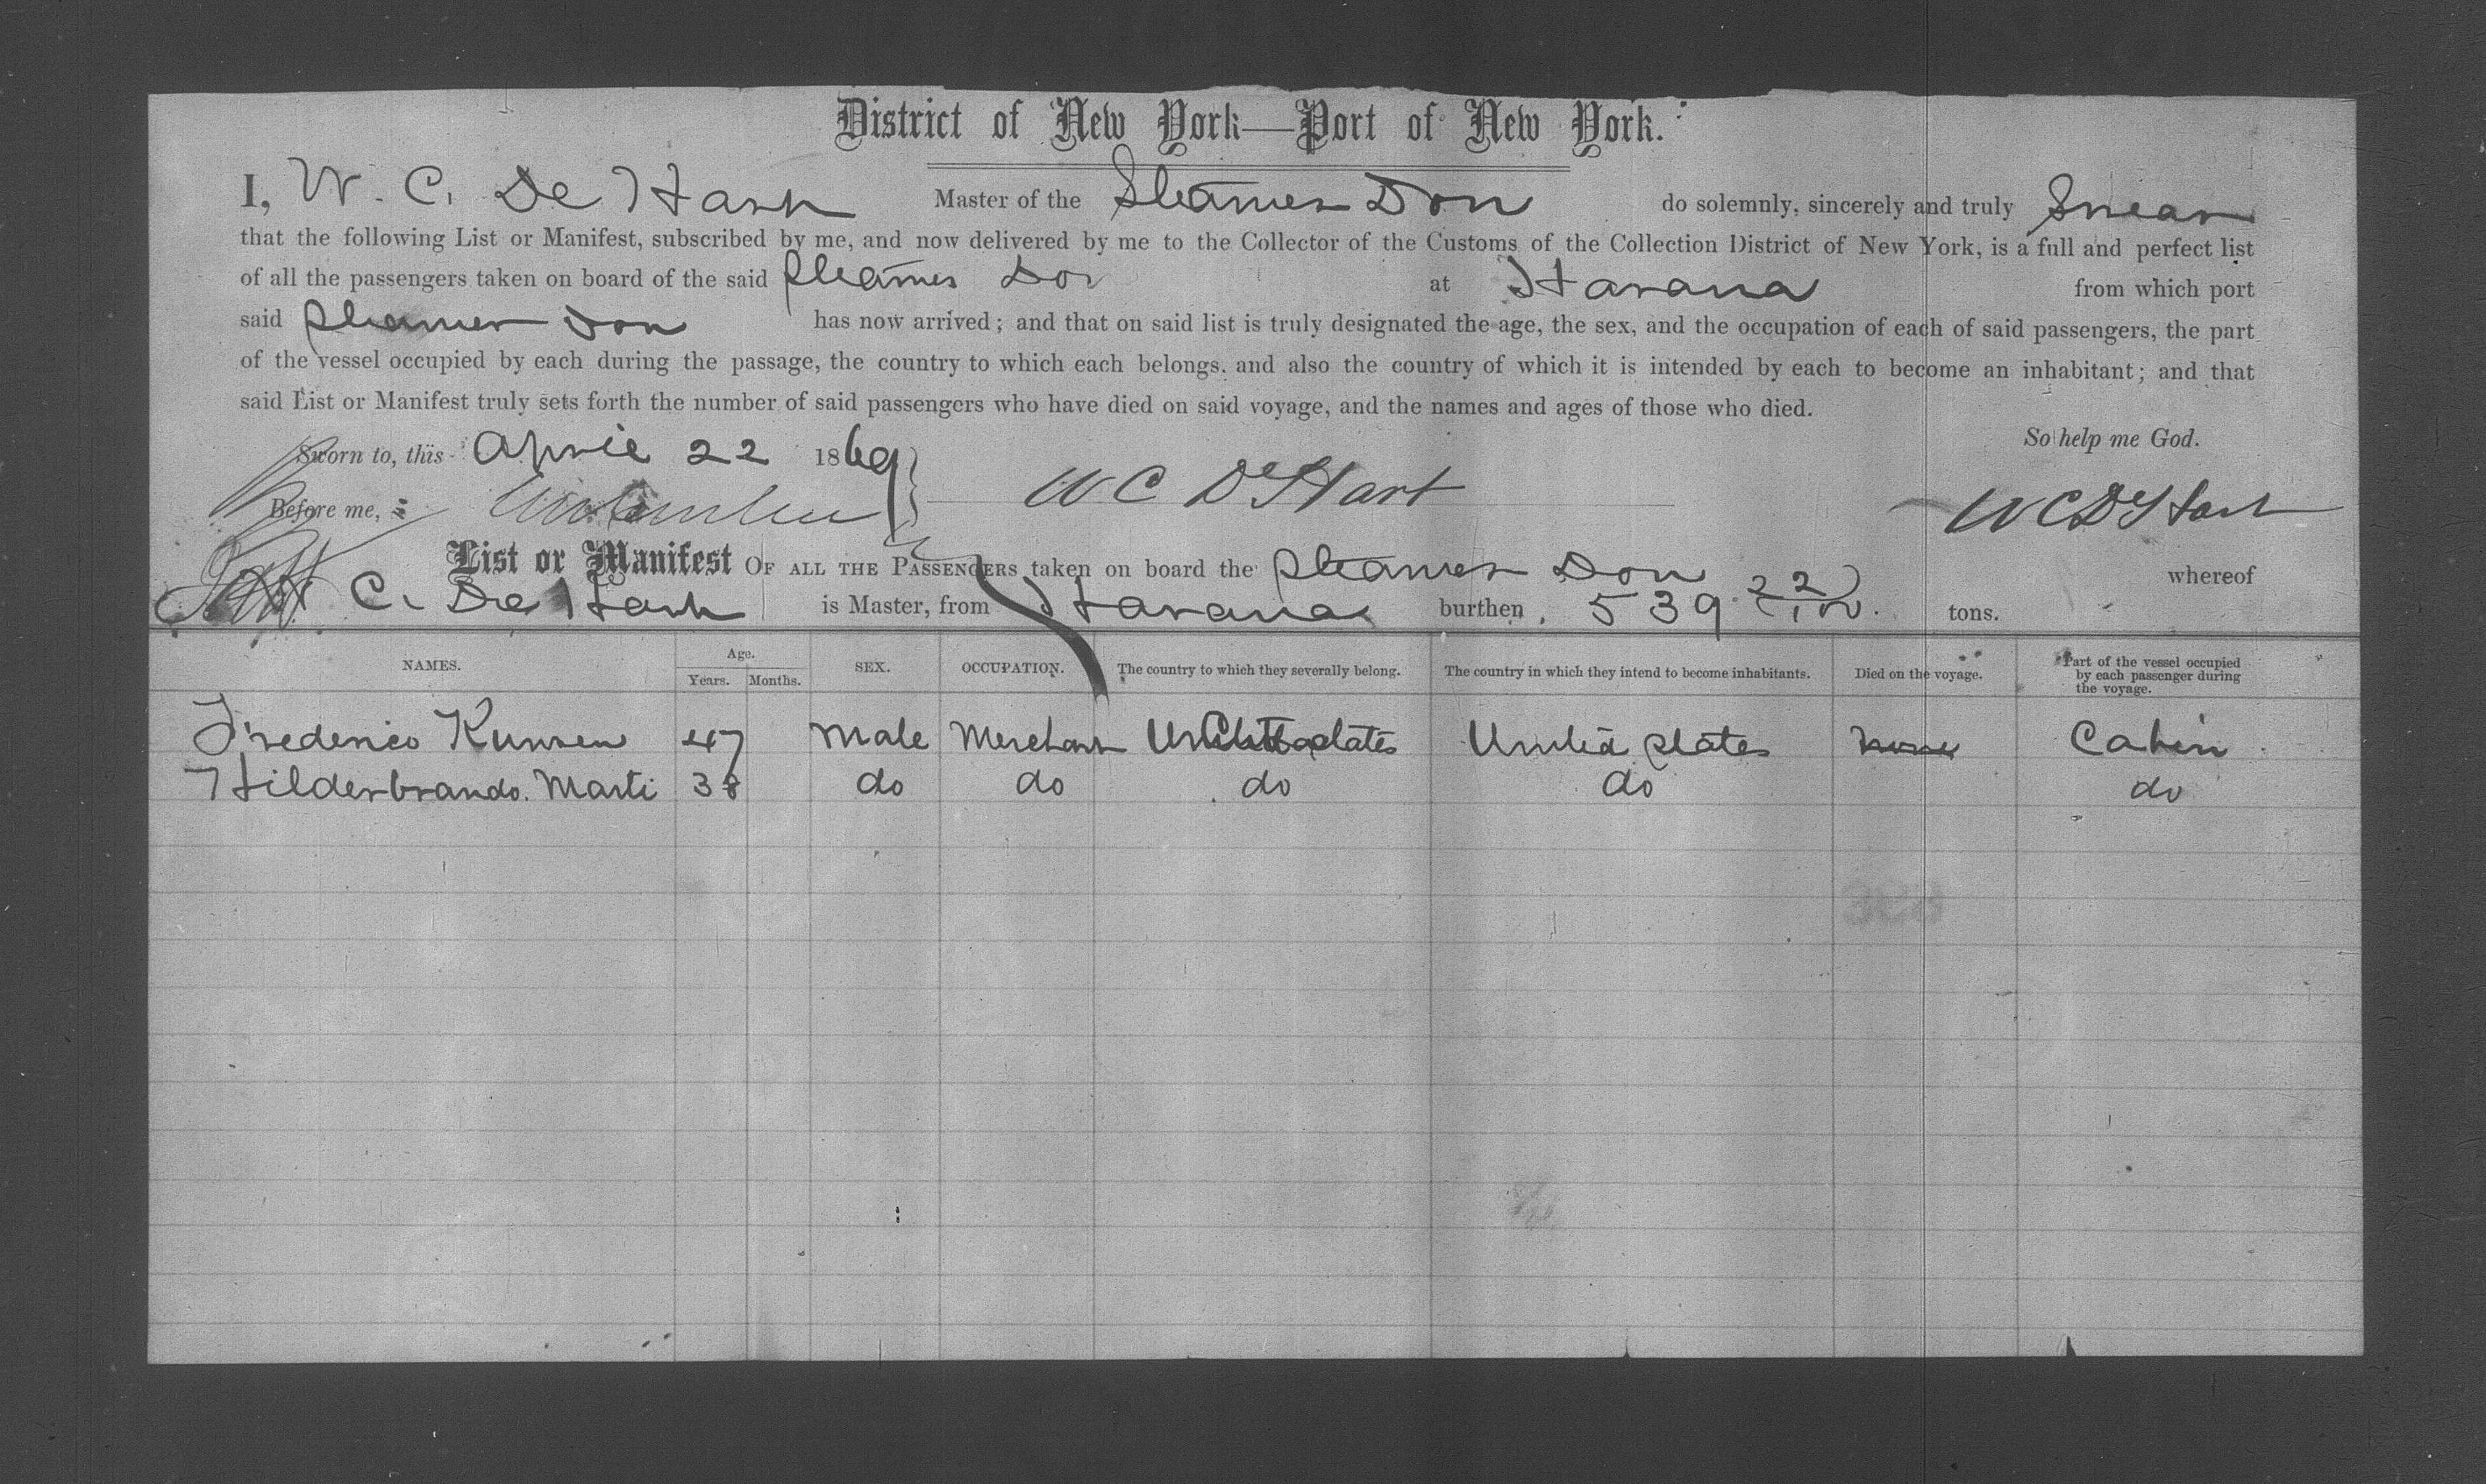 District of New York—Port of New York.
I, W. C. De Hart Master of the Steamer Don do solemnly, sincerely and truly Swear
that the following List or Manifest, subscribed by me, and now delivered by me to the Collector of the Customs of the Collection District of New York, is a full and perfect list
of all the passengers taken on board of the said Steamer Don at Havana from which port
said Steamer Don has now arrived; and that on said list is truly designated the age, the sex, and the occupation of each of said passengers, the part
of the vessel occupied by each during the passage, the country to which each belongs. and also the country of which it is intended by each to become an inhabitant; and that
said List or Manifest truly sets forth the number of said passengers who have died on said voyage, and the names and ages of those who died.
So help me God.
Sworn to, this April 22 1869
Before me, W C DeHart W C DeHart
List or Manifest OF ALL THE PASSENGERS taken on board the Steamer Don whereof
W C. De Hart is Master, from Havana burthen 539 22/100 tons.
NAMES. Age. Years. Months. SEX. OCCUPATION. The country to which they severally belong. The country in which they intend to become inhabitants. Died on the voyage. Part of the vessel occupied by each passenger during the voyage.
Frederico 47 Male Merchant United States United States none Cabin
Hilderbrando. Marti 38 do do do do do